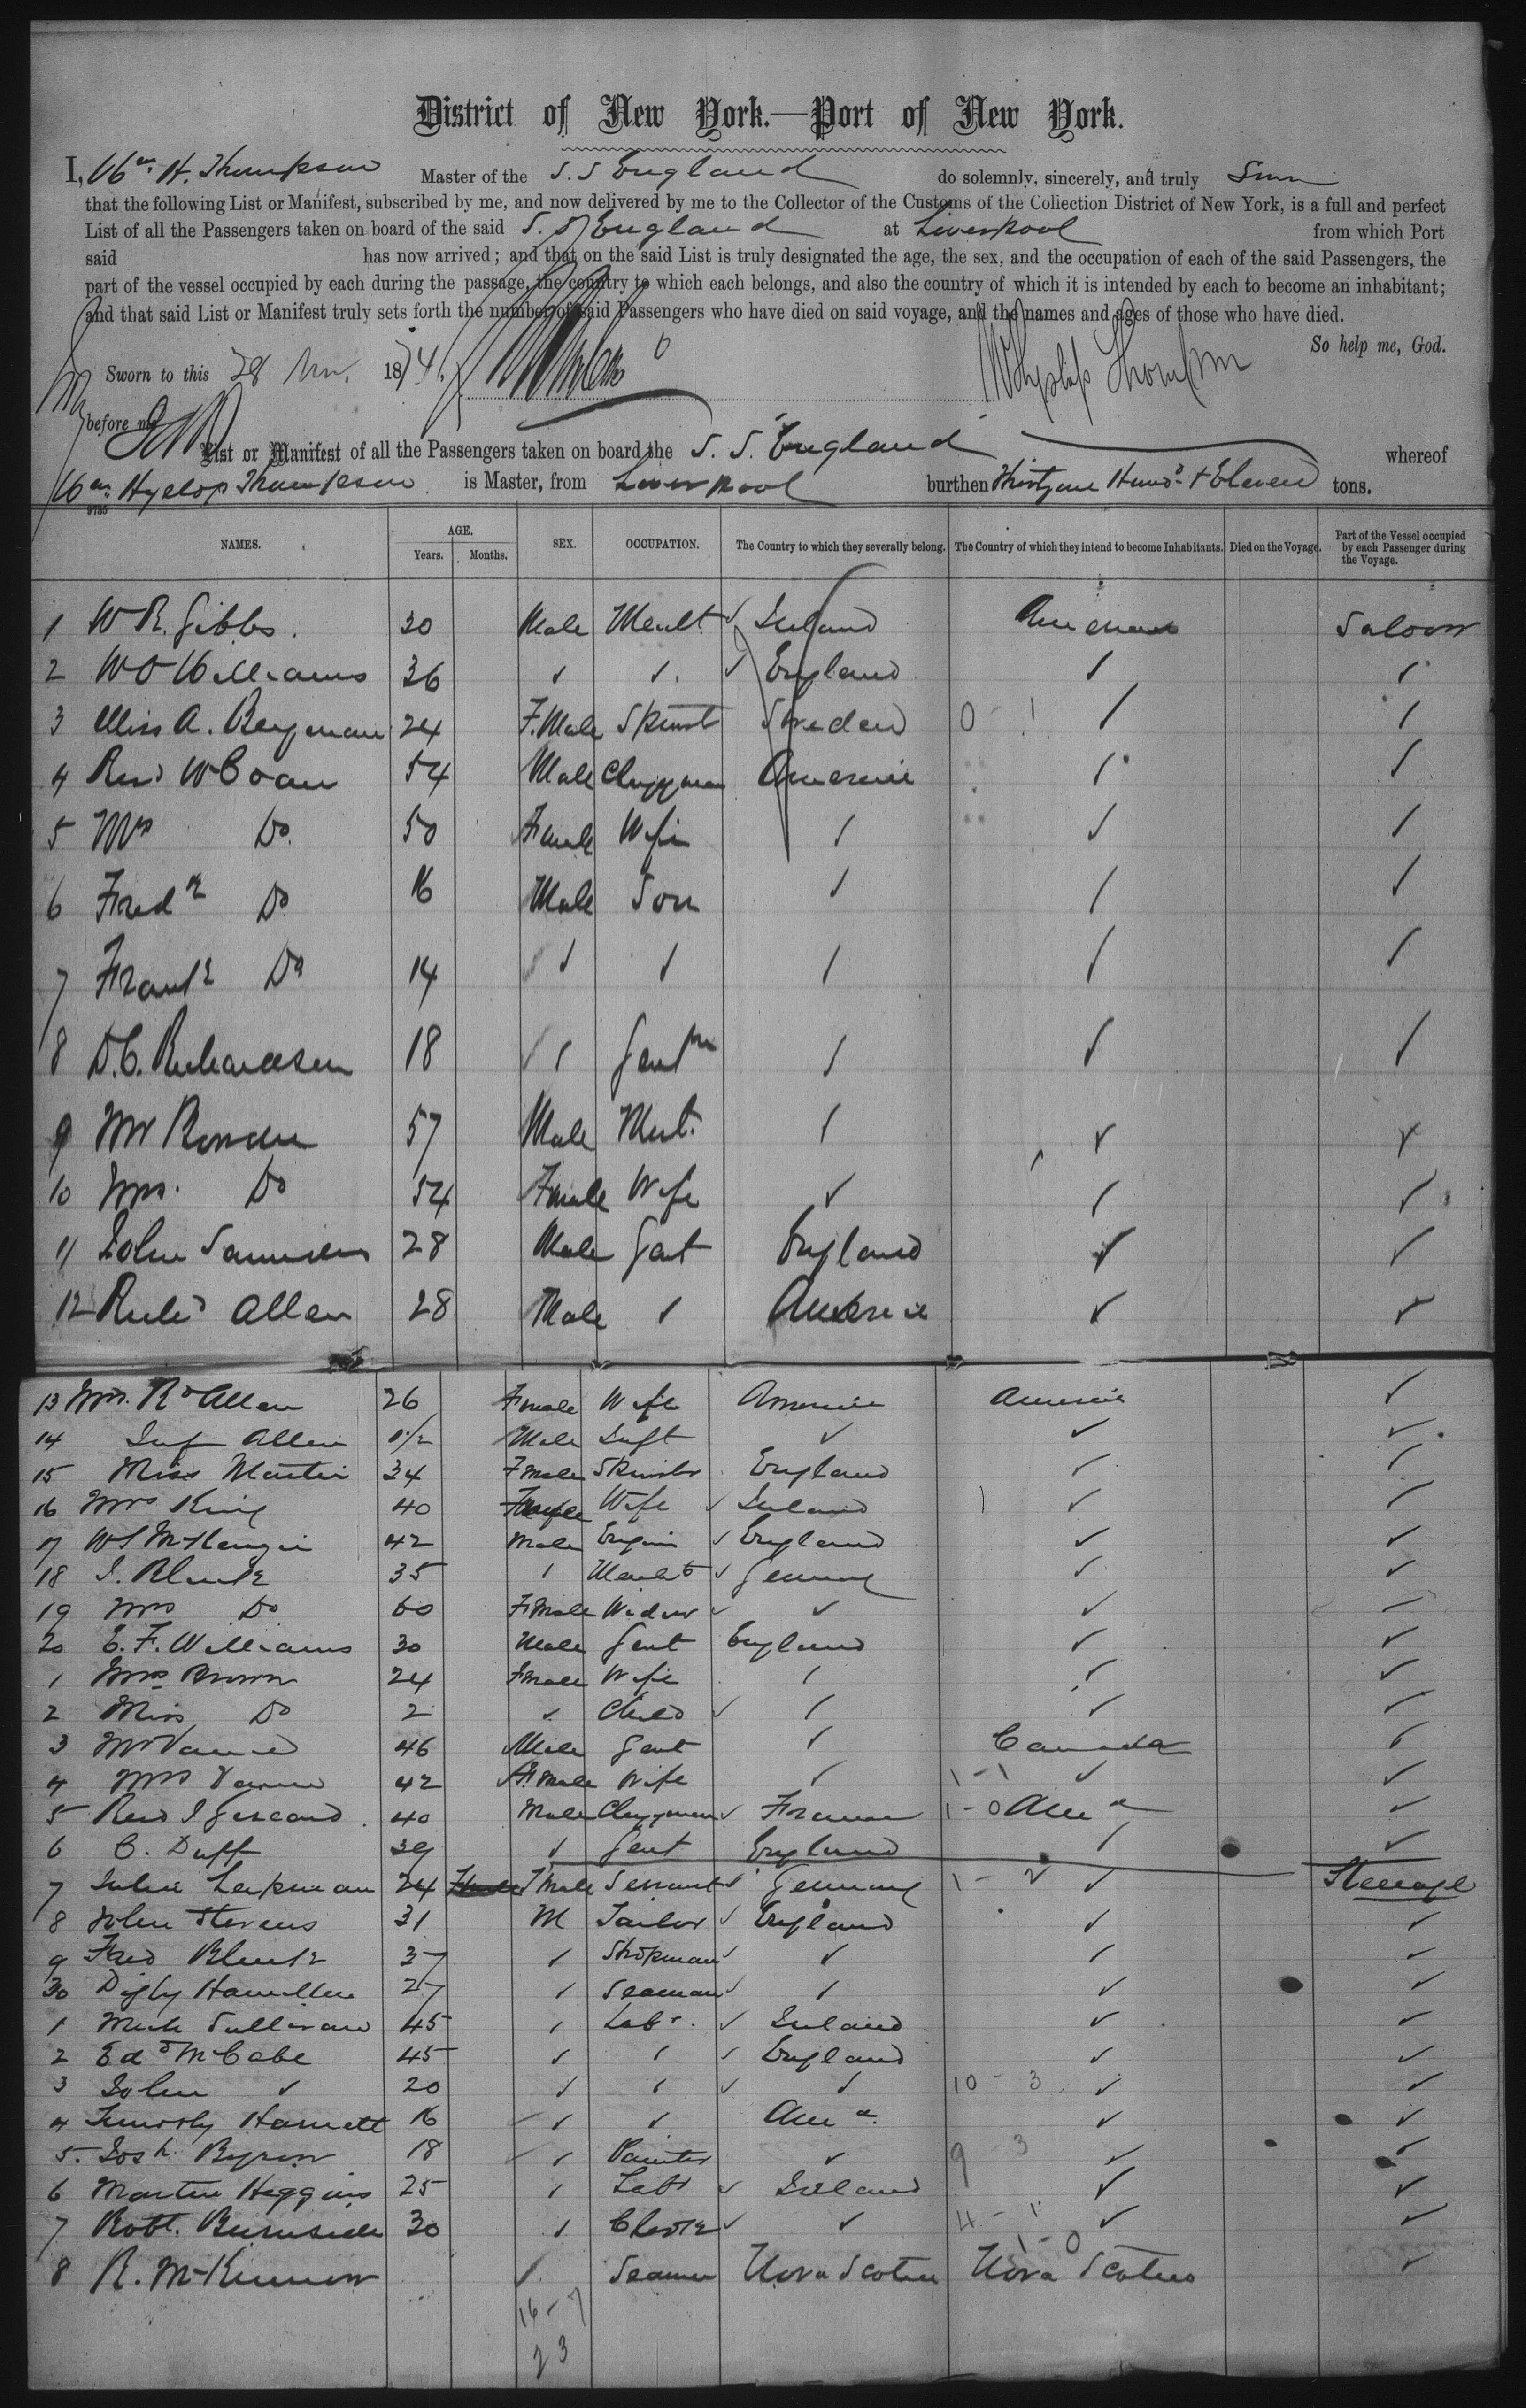 District of New York.—Port of New York.
I, Wm. H. Thompson Master of the S.S England do solemnly, sincerely, and truly Swear
that the following List or Manifest, subscribed by me, and now delivered by me to the Collector of the Customs of the Collection District of New York, is a full and perfect
List of all the Passengers taken on board of the said S.S England at Liverpool from which Port
said has now arrived; and that on the said List is truly designated the age, the sex, and the occupation of each of the said Passengers, the
part of the vessel occupied by each during the passage, the country to which each belongs, and also the country of which it is intended by each to become an inhabitant;
and that said List or Manifest truly sets forth the number of said Passengers who have died on said voyage, and the names and ages of those who have died.
So help me, God.
Sworn to this 28 Nov. 1874. W Hyslop Thompson
before me
List or Manifest of all the Passengers taken on board the S. S. England whereof
Wm. Hyslop Thompson is Master, from Liverpool burthen Thirtyone Hund. & Eleven tons.
NAMES. AGE. Years. Months. SEX. OCCUPATION. The Country to which they severally belong. The Country of which they intend to become Inhabitants. Died on the Voyage. Part of the Vessel occupied by each Passenger during the Voyage.
1 W R. Gibbs. 30 Male Ireland America Saloon
2 W O Williams 36 ✓ ✓ England ✓ ✓
3 Miss A. Bergman 24 F.Male Spinst Sweden ✓ ✓
4 Revd W Coan 54 Male Clergyman America ✓ ✓
5 Mrs Do 50 Female Wife ✓ ✓ ✓
6 Fredk Do 16 Male Son ✓ ✓ ✓
7 Frank Do 14 ✓ ✓ ✓ ✓ ✓
8 D.C. Richardson 18 ✓ Gentm ✓ ✓ ✓
9 Mr 57 Male Mert. ✓ ✓ ✓
10 Mrs. Do 54 Female Wife ✓ ✓ ✓
11 John Saunders 28 Male Gent England ✓ ✓
12 Richd Allen 28 Male ✓ America ✓ ✓
13 Mrs. Rd Allen 26 Female Wife America America ✓
14 Inf Allen 1/2 Male Inft ✓ ✓ ✓
15 Miss Martin 34 Female Spinster England ✓ ✓
16 Mrs King 40 Female Wife Ireland ✓ ✓
17 W S McKenzie 42 Male Engin England ✓ ✓
18 35 ✓ Germany ✓ ✓
19 Mrs Do 60 Female Widow ✓ ✓
20 E. F. Williams 30 Male Gent England ✓ ✓
1 Mrs Brown 24 Female Wife ✓ ✓ ✓
2 Miss Do 2 ✓ Child ✓ ✓ ✓
3 Mr 46 Male Gent ✓ Canada ✓
4 Mrs 42 Female Wife ✓ ✓ ✓
5 Revd 40 Male Clergyman France 1-0 Ama ✓
6 C. Duff 39 ✓ Gent England ✓ ✓
7 24 Female Servant Germany ✓ Steerage
8 John Stevens 31 M Tailor England ✓ ✓
9 Fred 37 ✓ Shopman ✓ ✓ ✓
30 Digby Hamilton 27 ✓ Seaman ✓ ✓ ✓
1 Mich Sullivan 45 ✓ Labr. Ireland ✓ ✓
2 Edd McCabe 45 ✓ ✓ England ✓ ✓
3 John ✓ 20 ✓ ✓ ✓ 10 - 3 ✓ ✓
4 Timothy Harnett 16 ✓ ✓ Ama. ✓ ✓
5. Josh. Byron 18 ✓ Painter ✓ 9 - 3 ✓ ✓
6 Martin Higgins 25 ✓ Labr Ireland ✓ ✓
7 Robt. Burnside 30 ✓ Clerk ✓ 4 - 1 ✓ ✓
1 - 0
8 R. McKinnon ✓ Seaman Nova Scotia Nova Scotia ✓
16 - 7
23